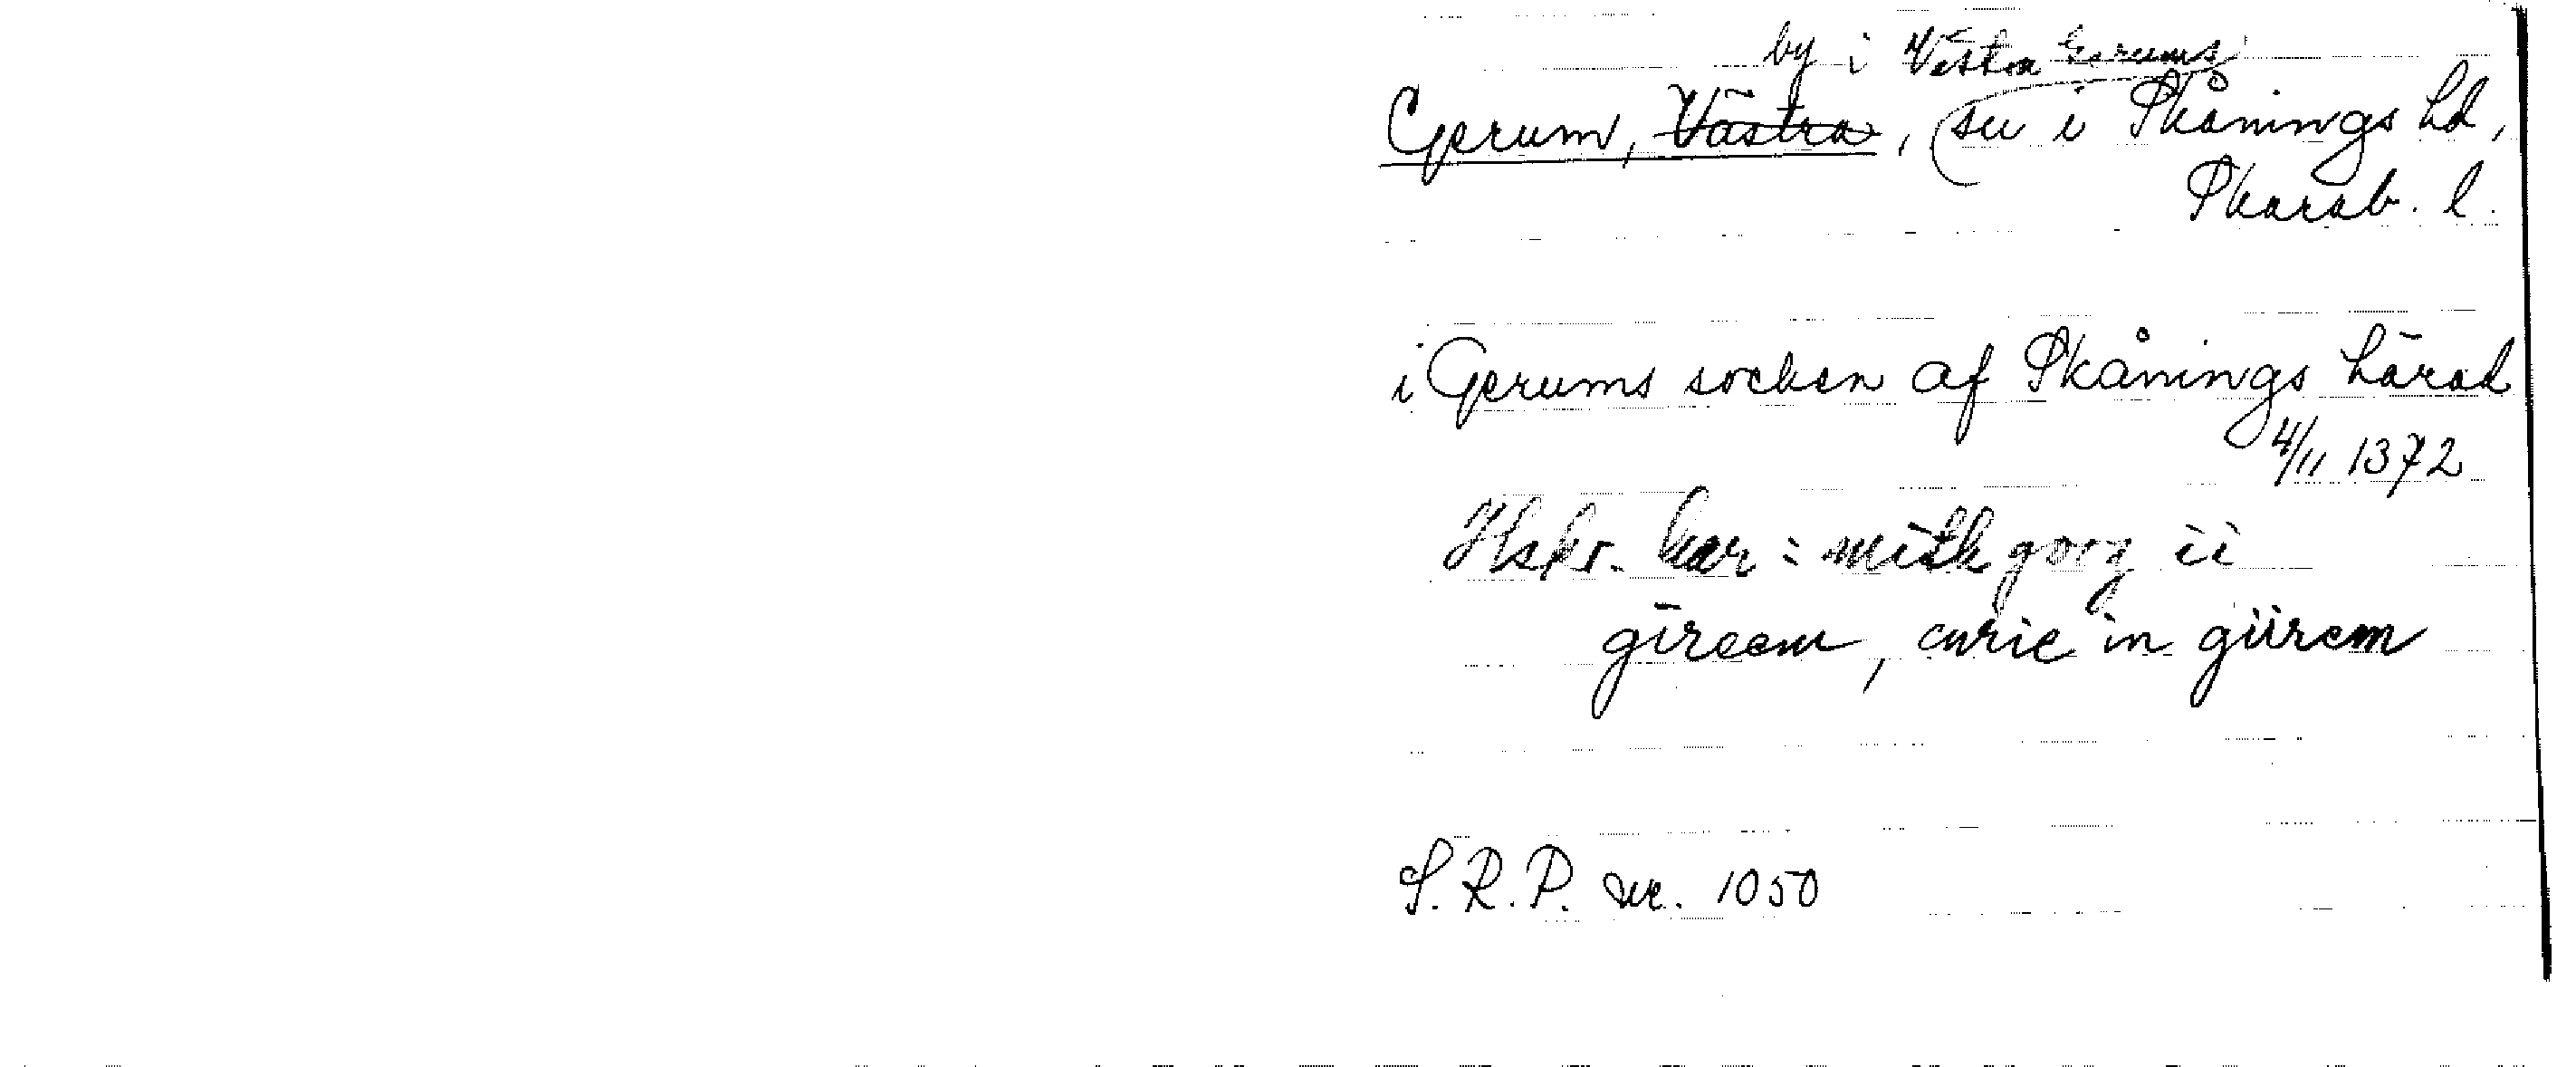 by i Västra Gerums
Gerum, Västra, sn i Skånings hd,
Skarab. l.
i Gerums socken af Skånings härad
4/11 1372
Hskr. har: mith gotz ii
gireem, curie in giirem
S.R.P. nr. 1050